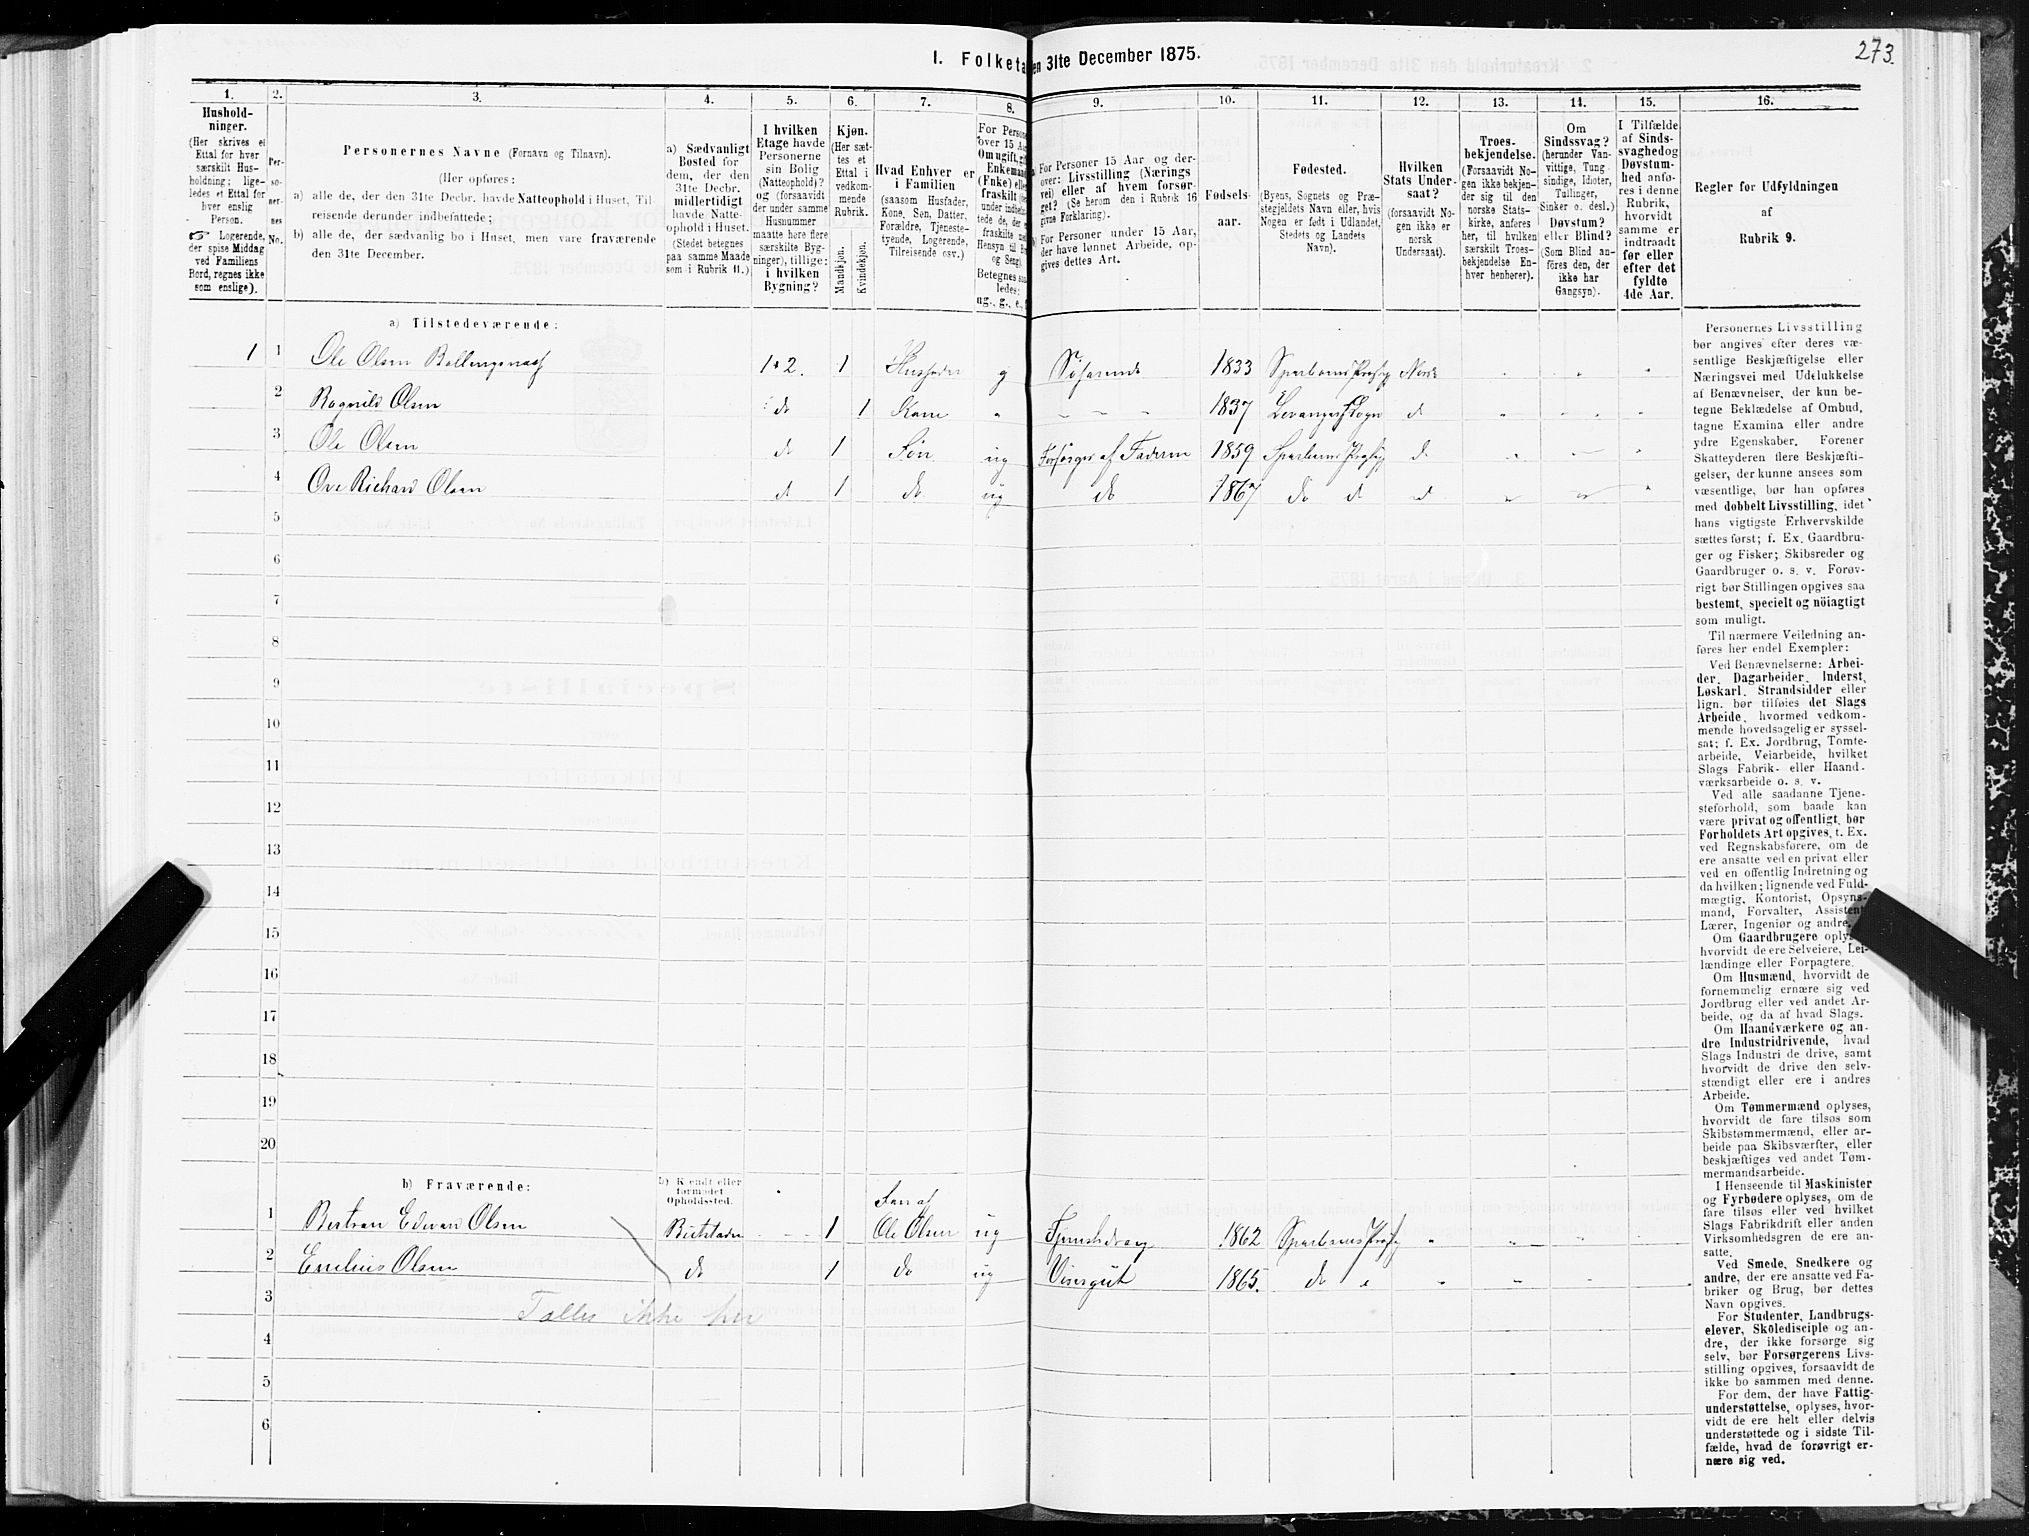 273.
I. Folketa
en 31te December 1875.
1. 2. 3. 4. 5. 6. 7. 8. 9. 10. 11. 12. 13. 14. 15. 16.
Hushold-
ninger.
(Her skrives et
Ettal for hver
særskilt Hus-
holdning; lige-
ledes et Ettal for
hver enslig
Person.
☞ Logerende,
der spise Middag
ved Familiens
Bord, regnes ikke
som enslige).
Per-
so-
ner-
nes
No.
Personernes Navne (Fornavn og Tilnavn).
(Her opføres:
a) alle de, der den 31te Decbr. havde Natteophold i Huset, Til-
reisende derunder indbefattede;
b) alle de, der sædvanlig bo i Huset, men vare fraværende
den 31te December.
a) Sædvanligt
Bosted for
dem, der den
31te Decbr.
midlertidigt
havde Natte-
ophold i Huset.
(Stedet betegnes
paa samme Maade
som i Rubrik 11.)
I hvilken
Etage havde
Personerne
sin Bolig
(Natteophold)?
og (forsaavidt
der under samme
Husnummer
maatte høre flere
særskilte Byg-
ninger), tillige:
i hvilken
Bygning?
Kjøn.
(Her sæt-
tes et
Ettal i
vedkom-
mende
Rubrik.
Mandkjøn.
Kvindekjøn.
Hvad Enhver er
i Familien
(saasom Husfader,
Kone, Søn, Datter,
Forældre, Tjeneste-
tyende, Logerende,
Tilreisende osv.)
For Persone
over 15 Aar
Om ugift, gif
Enkemand
(Enke) elle
fraskilt (her
under indbefat-
tede de, der er
fraskilte med
Hensyn til B
og Seng).
Betegnes saa-
ledes:
ug., g., e.,
For Personer 15 Aar og der-
over: Livsstilling (Nærings
vei) eller af hvem forsør-
get? (Se herom den i Rubrik 16
givne Forklaring).
For Personer under 15 Aar,
der have lønnet Arbeide, op-
gives dettes Art.
Fødsels-
aar.
Fødested.
(Byens, Sognets og Præ-
stegjeldets Navn eller, hvis
Nogen er født i Udlandet,
Stedets og Landets
Navn).
Hvilken
Stats Under-
saat?
(forsaavidt No-
gen ikke er
norsk
Undersaat).
Troes-
bekjendelse.
(Forsaavidt No-
gen ikke bekjen-
der sig til den
norske Stats-
kirke, anføres
her, til hvilken
særskilt Troes-
bekjendelse En-
hver henhører).
Om
Sindssvag?
(herunder Van-
vittige, Tung-
sindige, Idioter,
Tullinger,
Sinker o. desl.)
Døvstum?
eller Blind?
(Som Blind an-
føres den, der
ikke har
Gangsyn).
I Tilfælde
af Sinds-
svaghed og
Døvstum-
hed anfø-
res i denne
Rubrik,
hvorvidt
samme er
indtraadt
før eller
efter det
fyldte
4de Aar.
Regler for Udfyldningen
af
Rubrik 9.
a) Tilstedeværende:
1 1 Ole Olsen 1+2. 1 Husfader g Søfarende 1833 Norsk
2 Ragnild Olsen do 1 Kone 1837 Levanger Sogn d
3 Ole Olsen do 1 Søn ug Forsørges af Faderen 1859 d
4 Ove Richard Olsen d 1 do ug do 1867 do d d
5
6
7
8
9
10
11
12
13
14
15
16
17
18
19
20
b) Fraværende:
b) Kjendt eller
formodet
Opholdssted.
Søn af
1 Bertran Edvard Olsen 1 Ole Olsen ug Tjenestedreng 1862
2 Emilius Olsen do 1 do ug Visergut 1865. do
3 Tælles ikke her
4
5
6
Personernes Livsstilling
bør angives efter deres væ-
sentlige Beskjæftigelse eller
Næringsvei med Udelukkelse
af Benævnelser, der kun be-
tegne Beklædelse af Ombud,
tagne Examina eller andre
ydre Egenskaber. Forener
Skatteyderen flere Beskjæfti-
gelser, der kunne ansees som
væsentlige, bør han opføres
med dobbelt Livsstilling, idet
hans vigtigste Erhvervskilde
sættes først; f. Ex. Gaardbru-
ger og Fisker; Skibsreder og
Gaardbruger o. s. v. Forøv-
rigt bør Stillingen opgives saa
bestemt, specielt og nöiagtigt
som muligt.
Til nærmere Veiledning an-
føres her endel Exempler:
Ved Benævnelserne: Arbei-
der, Dagarbeider, Inderst,
Løskarl, Strandsidder eller
lign. bør tilføies det Slags
Arbeide, hvormed vedkom-
mende hovedsagelig er syssel-
sat; f. Ex. Jordbrug, Tomte-
arbeide, Veiarbeide, hvilket
Slags Fabrik- eller Haand-
værksarbeide o. s. v.
Ved alle saadanne Tjene-
steforhold, som baade kan
være privat og offentligt, bør
Forholdets Art opgives, t. Ex.
ved Regnskabsførere, om de
ere ansatte ved en privat eller
ved en offentlig Indretning og
da hvilken; lignende ved Fuld-
mægtig, Kontorist, Opsyns-
mand, Forvalter, Assistent,
Lærer, Ingeniør og andre.
Om Gaardbrugere oplyses,
hvorvidt de ere Selveiere, Lei-
lændinge eller Forpagtere.
Om Husmænd, hvorvidt de
fornemmelig ernære sig ved
Jordbrug eller ved andet Ar-
beide, og da af hvad Slags.
Om Haandværkere og an-
dre Industridrivende, hvad
Slags Industri de drive, samt
hvorvidt de drive den selv-
stændigt eller ere i andres
Arbeide.
Om Tømmermænd oplyses,
hvorvidt de fare tilsøs som
Skibstømmermænd, eller ar-
beide paa Skibsværfter, eller
beskjæftiges ved andet Tøm-
mermandsarbeide.
I Henseende til Maskinister
og Fyrbødere oplyses, om de
fare tilsøs eller ved hvilket
Slags Fabrikdrift eller anden
Virksomhedsgren de ere an-
satte.
Ved Smede, Snedkere og
andre, der ere ansatte ved Fa-
briker og Brug, bør dettes
Navn opgives.
For Studenter, Landbrugs-
elever, Skoledisciple og an-
dre, der ikke forsørge sig
selv, bør Forsørgerens Livs-
stilling opgives, forsaavidt de
ikke bo sammen med denne.
For dem, der have Fattig-
understøttelse, oplyses, hvor-
vidt de ere helt eller delvis
understøttede og i sidste Til-
fælde, hvad de forøvrigt er-
nære sig ved.